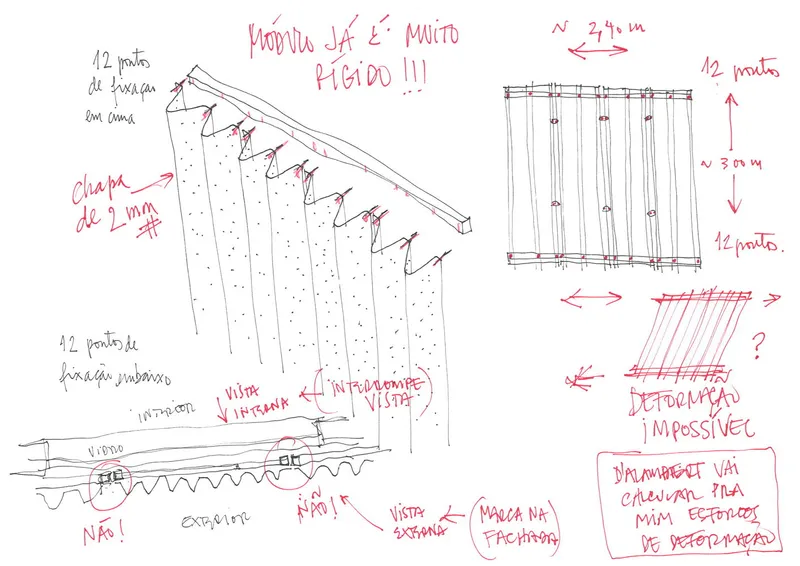 MÓDULO JÁ É MUITO
RÍGIDO!!!
12 pontos
de fixação
em cima
chapa
de 2 mm
#
~ 2,40 m
12 pontos
~ 3.00 m
12 pontos.
?
DEFORMAÇÃO
IMPOSSÍVEL
12 pontos de
fixação, embaixo
INTERIOR
VISTA
INTERNA
(INTERROMPE
VISTA)
VIDRO
NÃO!
EXTERIOR
NÃO!
VISTA
EXTERNA
(MARCA NA
FACHADA)
D'ALAMBERT VAI
CALCULAR PRA
MIM ESFORÇOS
DE DEFORMAÇÃO